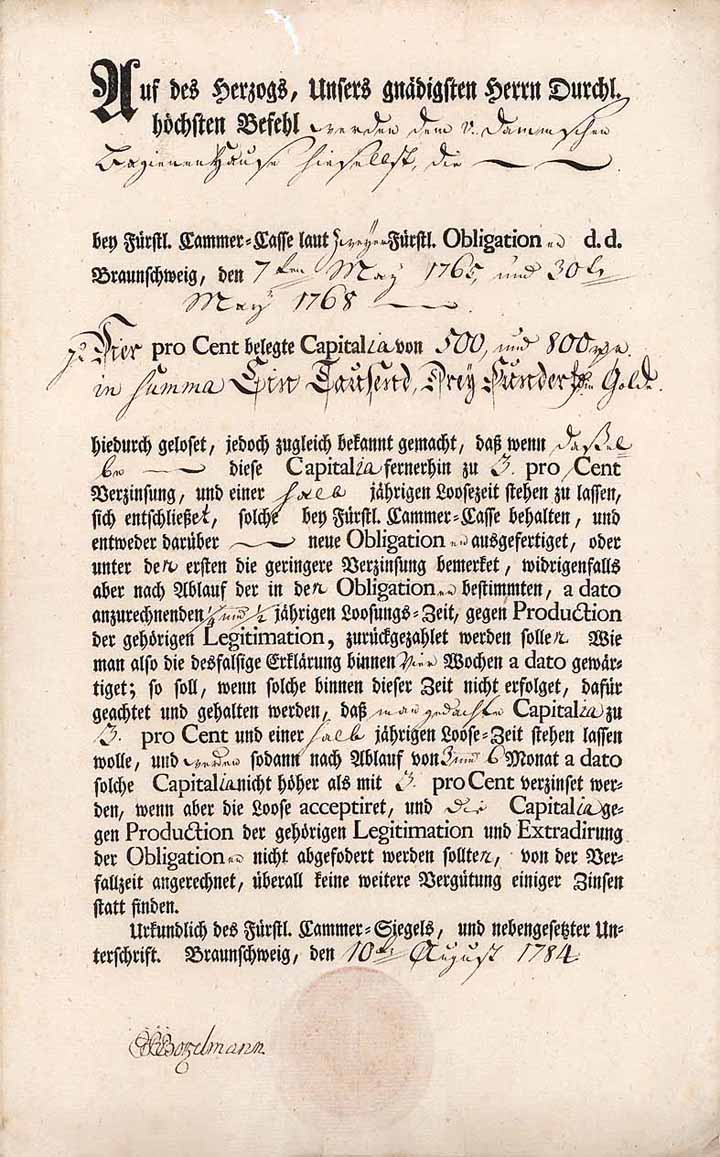 Auf des Herzogs, Unsers gnädigsten Herrn Durchl.
höchsten Befehl werden dem v. Dammschen
Beginenhause hieselbst, die
bey Fürstl. Cammer=Casse laut zweyer Fürstl. Obligationen d. d.
Braunschweig, den 7ten May 1765, und 30te
May 1768
zu Vier pro Cent belegte Capitalia von 500, und 800
in Summa Ein Tausend, Drey Hundert in Golde.
hiedurch geloset, jedoch zugleich bekannt gemacht, daß wenn daßel-
be diese Capitalia fernerhin zu 3. pro Cent
Verzinsung, und einer halb jährigen Loosezeit stehen zu lassen,
sich entschließet, solche bey Fürstl. Cammer=Casse behalten, und
entweder darüber neue Obligationen ausgefertiget, oder
unter den ersten die geringere Verzinsung bemerket, widrigenfalls
aber nach Ablauf der in den Obligationen bestimmten, a dato
anzurechnenden 1/4 und 1/2 jährigen Loosungs=Zeit, gegen Production
der gehörigen Legitimation, zurückgezahlet werden sollen. Wie
man also die desfalsige Erklärung binnen vier Wochen a dato gewär=
tiget; so soll, wenn solche binnen dieser Zeit nicht erfolget, dafür
geachtet und gehalten werden, daß man gedachte Capitalia zu
3. pro Cent und einer halb jährigen Loose=Zeit stehen lassen
wolle, und werden sodann nach Ablauf von 3 und 6 Monat a dato
solche Capitalia nicht höher als mit 3. pro Cent verzinset wer=
den, wenn aber die Loose acceptiret, und die Capitalia ge=
gen Production der gehörigen Legitimation und Extradirung
der Obligationen nicht abgefodert werden sollten, von der Ver=
fallzeit angerechnet, überall keine weitere Vergütung einiger Zinsen
statt finden.
Urkundlich des Fürstl. Cammer=Siegels, und nebengesetzter Un=
terschrift. Braunschweig, den 10te August 1784